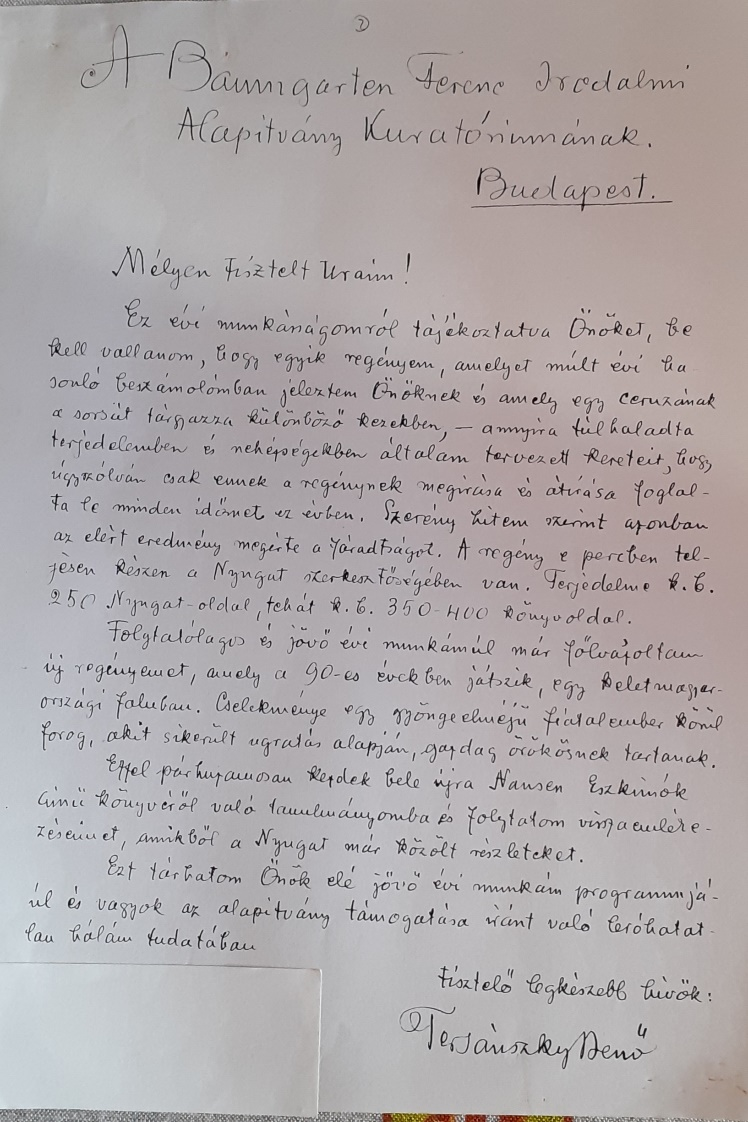 2
A Baumgarten Ferenc Irodalmi
Alapitvány Kuratóriumának.
Budapest.
Mélyen Tisztelt Uraim!
Ez évi munkásságomról tájékoztatva Önöket, be
kell vallanom, hogy egyik regényem, amelyet múlt évi ha
sonló beszámolómban jeleztem Önöknek és amely egy ceruzának
a sorsát tárgyazza különböző kezekben, — annyira túlhaladta
terjedelemben és nehézségekben általam tervezett kereteit, hogy
úgyszólván csak ennek a regénynek megirása és átirása foglal-
ta le minden időmet ez évben. Szerény hitem szerint azonban
az elért eredmény megérte a fáradtságot. A regény e percben tel-
jesen készen a Nyugat szerkesztőségében van. Terjedelme k.b.
250 Nyugat-oldal, tehát k.b. 350-400 könyvoldal.
Folytatólagos és jövő évi munkámúl már fölvázoltam
új regényemet, amely a 90-es években játszik, egy keletmagyar-
országi faluban. Cselekménye egy gyöngeelméjű fiatalember körül
forog, akit sikerült ugratás alapján, gazdag örökösnek tartanak.
Ezzel párhuzamosan kezdek bele újra Nansen Eszkimók
cimű könyvéről való tanulmányomba és folytatom visszaemléke-
zéseimet, amikből a Nyugat már közölt részleteket.
Ezt tárhatom Önök elé jövő évi munkám programmjá-
úl és vagyok az alapitvány támogatása iránt való leróhatat-
lan hálám tudatában
tisztelő legkészebb hivök:
Tersánszky Jenő